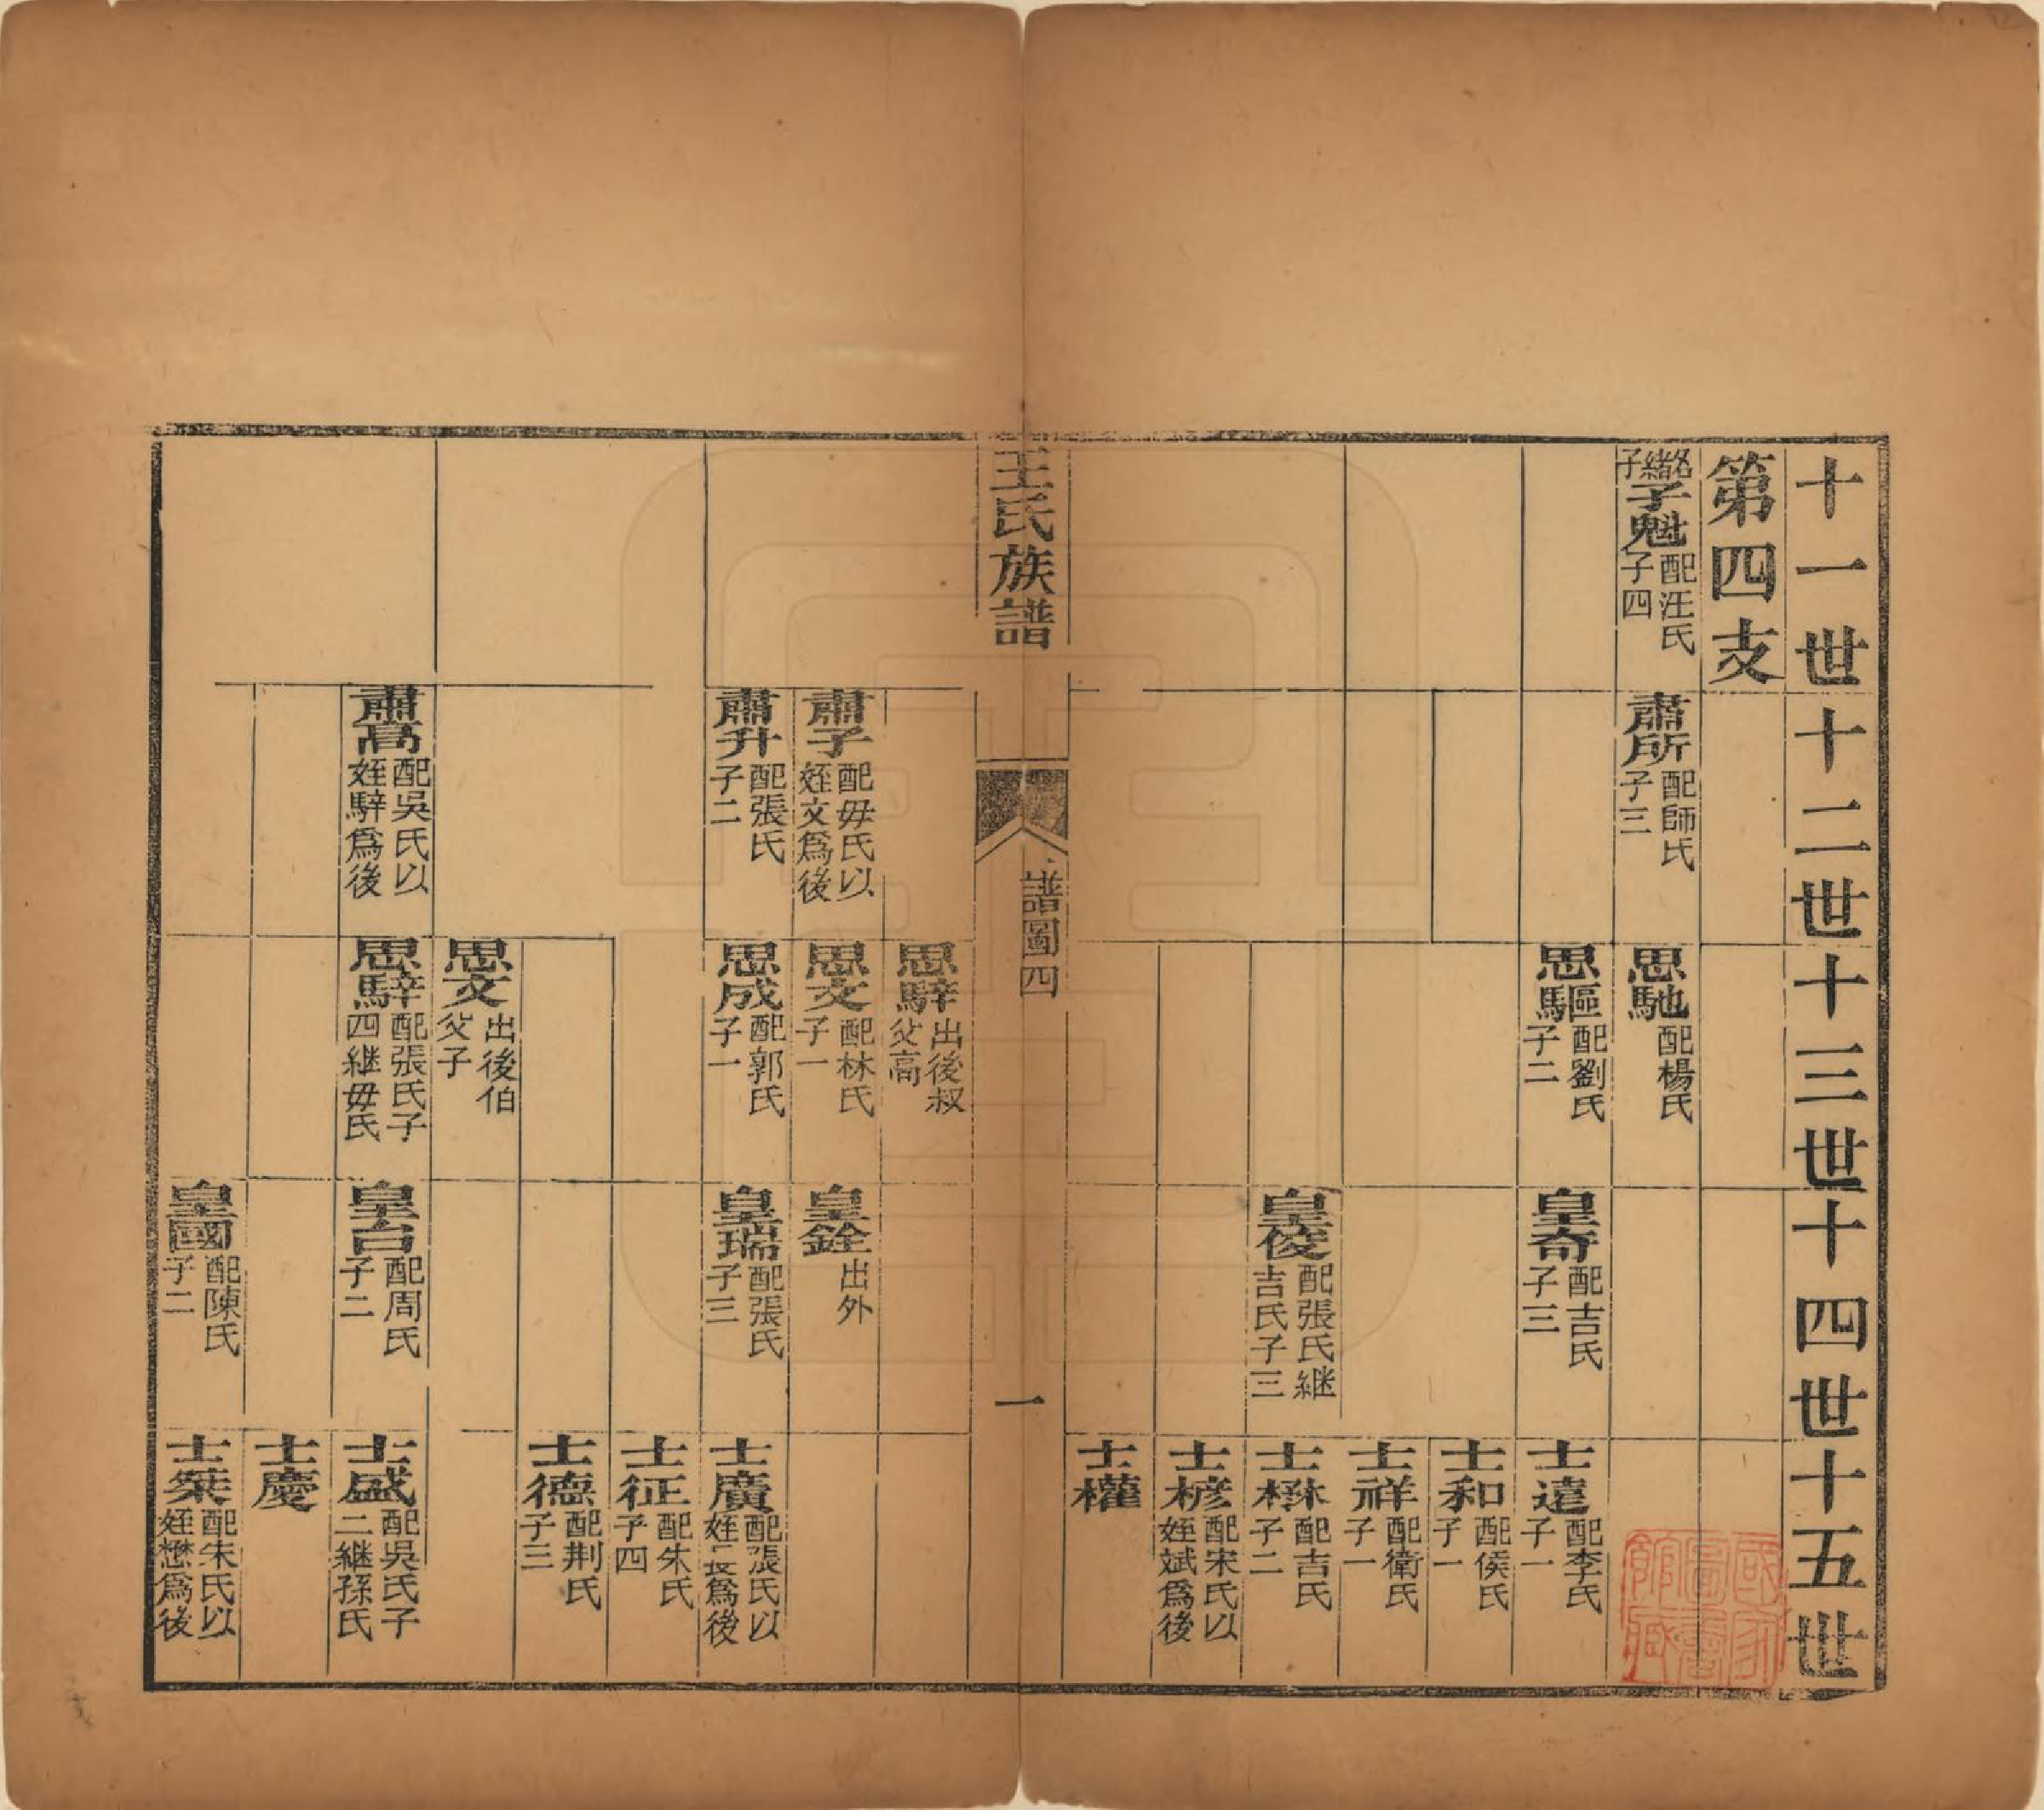 十一世 十二世 十三世 十四世 十五世
第四支
緒子
子魁 配汪氏 子四
肅所 配師氏 子三
思馳 配楊氏
思驅 配劉氏 子二
皇奇 配吉氏 子三
士遠 配李氏 子一
士和 配侯氏 子一
士祥 配衛氏 子一
皇俊 配張氏継 吉氏子三
士楙 配吉氏 子二
士㯋 配宋氏以 姪斌爲後
士權
王氏族譜
譜圖四
一
思騂 出後叔 父高
肅子 配毋氏以 姪文爲後
思文 配林氏 子一
皇銓 出外
肅升 配張氏 子二
思成 配郭氏 子一
皇瑞 配張氏 子三
士廣 配張氏以 姪長爲後
士征 配朱氏 子四
士德 配荆氏 子三
思文 出後伯 父子
肅高 配吳氏以 姪騂爲後
思騂 配張氏子 四継毋氏
皇台 配周氏 子二
士盛 配吳氏子 二継孫氏
士慶
皇國 配陳氏 子二
士桀 配朱氏以 姪懋爲後
國家圖書館藏